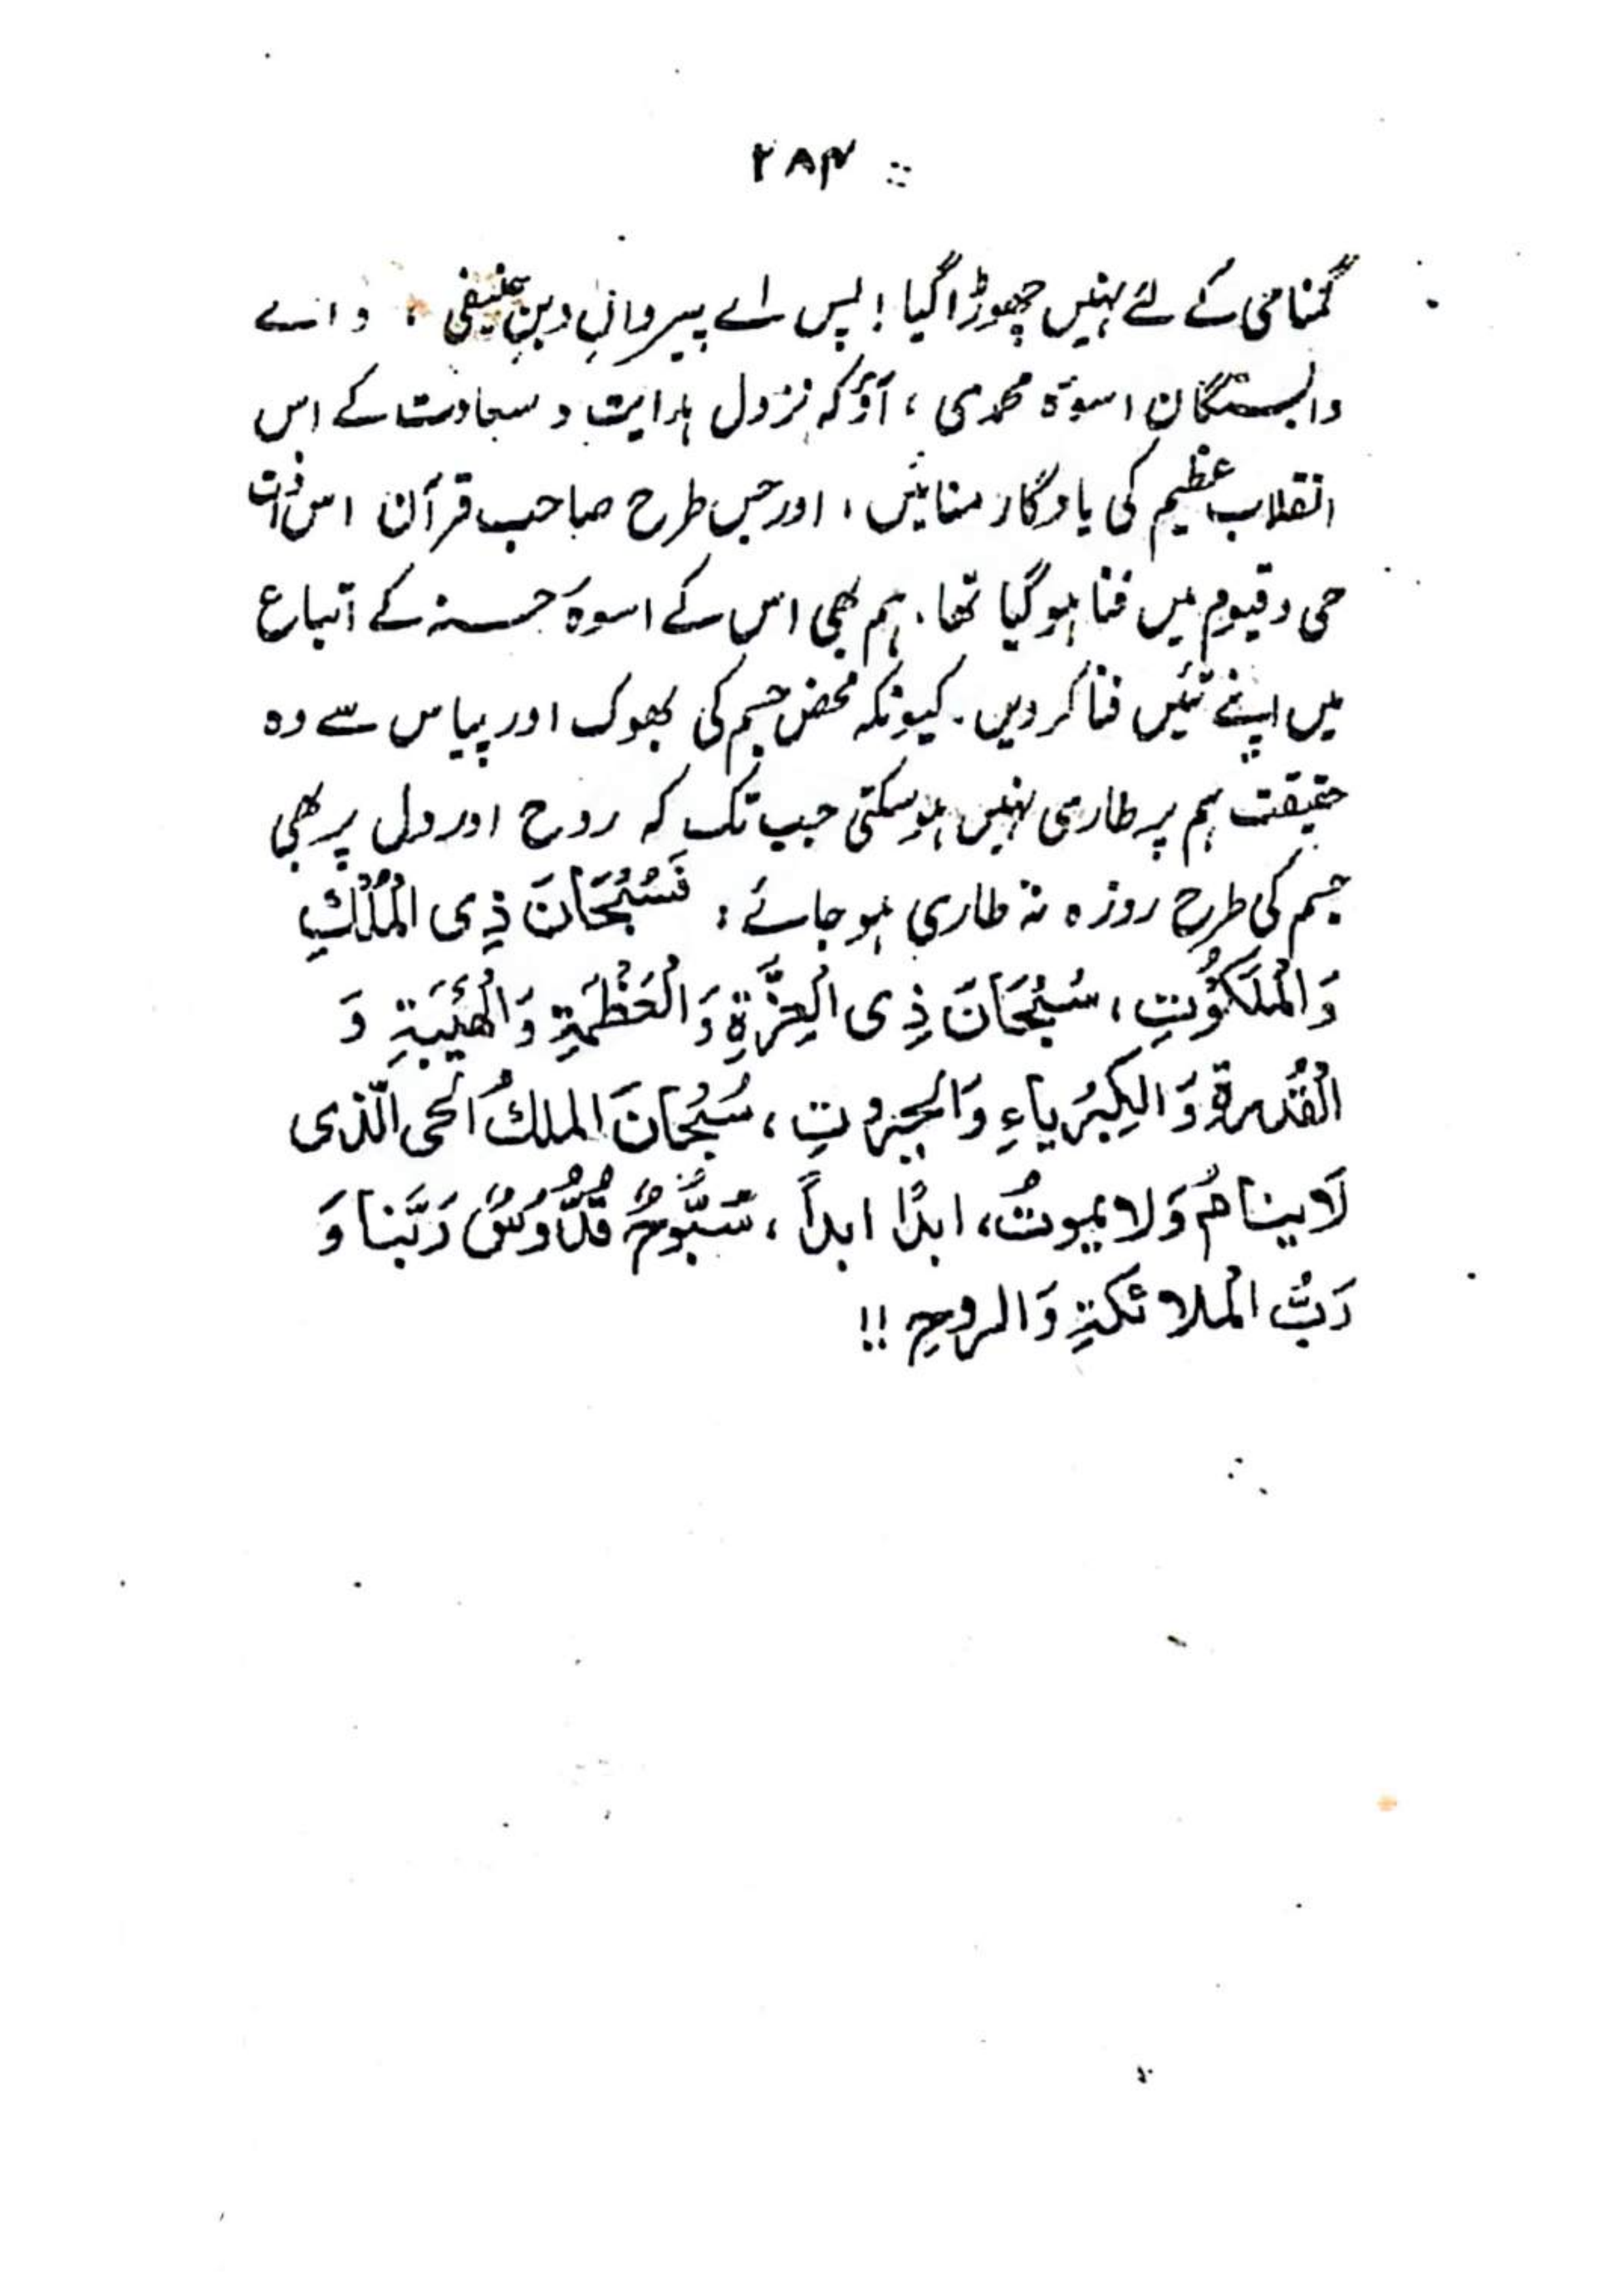 ۲۸۴
گمنامی کے لئے نہیں چھوڑا گیا! پس اے پیروانِ دینِ حنیفی، و اے
وابستگان اسوۂ محمدی، آؤ کہ نزول ہدایت و سعادت کے اس
انقلاب عظیم کی یادگار منائیں، اور جس طرح صاحب قرآن اس ذات
حی و قیوم میں فنا ہوگیا تھا، ہم بھی اس کے اسوۂ حسنہ کے اتباع
میں اپنے تئیں فنا کر دیں۔ کیونکہ محض جسم کی بھوک اور پیاس سے وہ
حقیقت ہم پر طاری نہیں ہوسکتی جب تک کہ روح اور دل پر بھی
جسم کی طرح روزہ نہ طاری ہو جائے: فَسُبْحَانَ ذِی الْمُلْكِ
وَالْمَلَكُوْتِ، سُبْحَانَ ذِی الْعِزَّةِ وَالْعَظْمَةِ وَالْهَيْبَةِ وَ
الْقُدرةِ وَالكِبْرِياءِ وَالجبروتِ، سُبْحَانَ الملكُ الحی الّذی
لَاینامُ وَلا یموتُ، ابدًا ابداً، سُبُّوحٌ قُدُّوسٌ رَبَّنا وَ
رَبُّ الْملائكةِ وَالروحِ!!